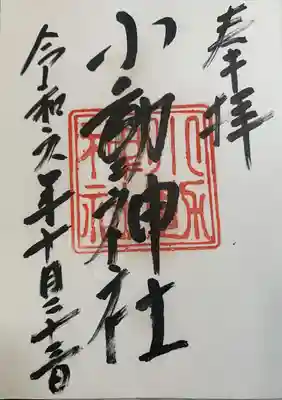 奉拝
小動神社
令和元年十月二十二日